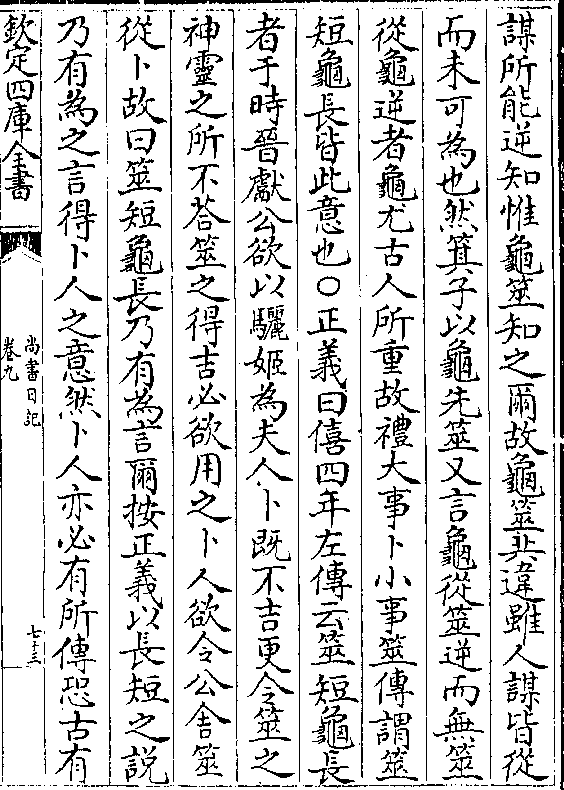 謀所能逆知惟龜筮知之爾故龜筮共違雖人謀皆從
而未可為也然箕子以龜先筮又言龜從筮逆而無筮
從龜逆者龜尤古人所重故禮大事卜小事筮傳謂筮
短龜長皆此意也○正義曰僖四年左傳云筮短龜長
者于時晉獻公欲以驪姬為夫人卜既不吉更令筮之
神靈之所不荅筮之得吉必欲用之卜人欲令公舎筮
從卜故曰筮短龜長乃有為言爾按正義以長短之說
乃有為之言得卜人之意然卜人亦必有所傳恐古有
欽定四庫全書
尚書日記
卷九
七十三